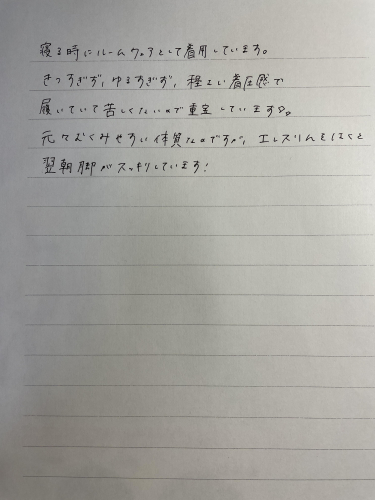 寝る時にルームウェアとして着用しています。
きつすぎず、ゆるすぎず、程よい着圧感で
履いていて苦しくないので重宝しています♡。
元々むくみやすい体質なのですが、エレスリムをはくと
翌朝脚がスッキリしています!